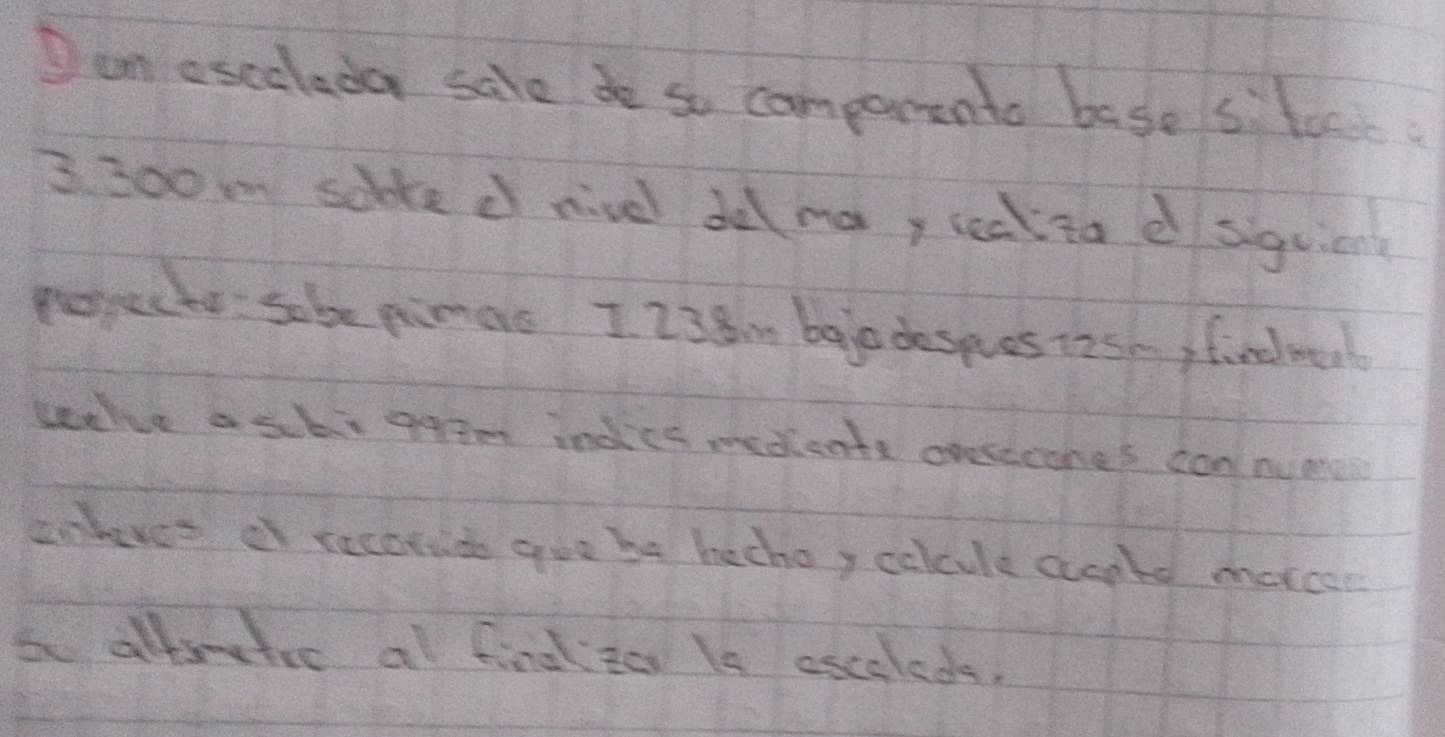 1) un escalador sale de su campamento base situado a
3.300m sobre el nivel del mar y realiza el siguiente
proyecto: sube primero 1238m baja despues 125m y finalmente
vuelve a subir 997m indica mediante operaciones con numeros
enteros el recorrido que ha hecho y calcule cuanto marcara
su altimetro al finalizar la escalada.